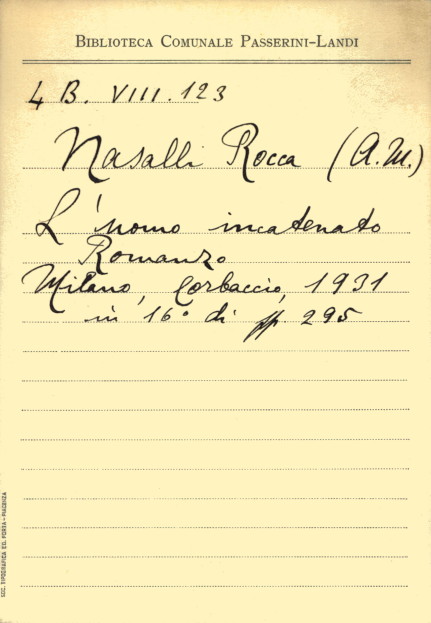 BIBLIOTECA COMUNALE PASSERINI-LANDI
4 B. VIII. 123
Nasalli Rocca (A.M.)
L'uomo incatenato
Romanzo
Milano, Corbaccio, 1931
in 16° di pp. 295
SOC. TIPOGRAFICA EDI. PORTA - PIACENZA